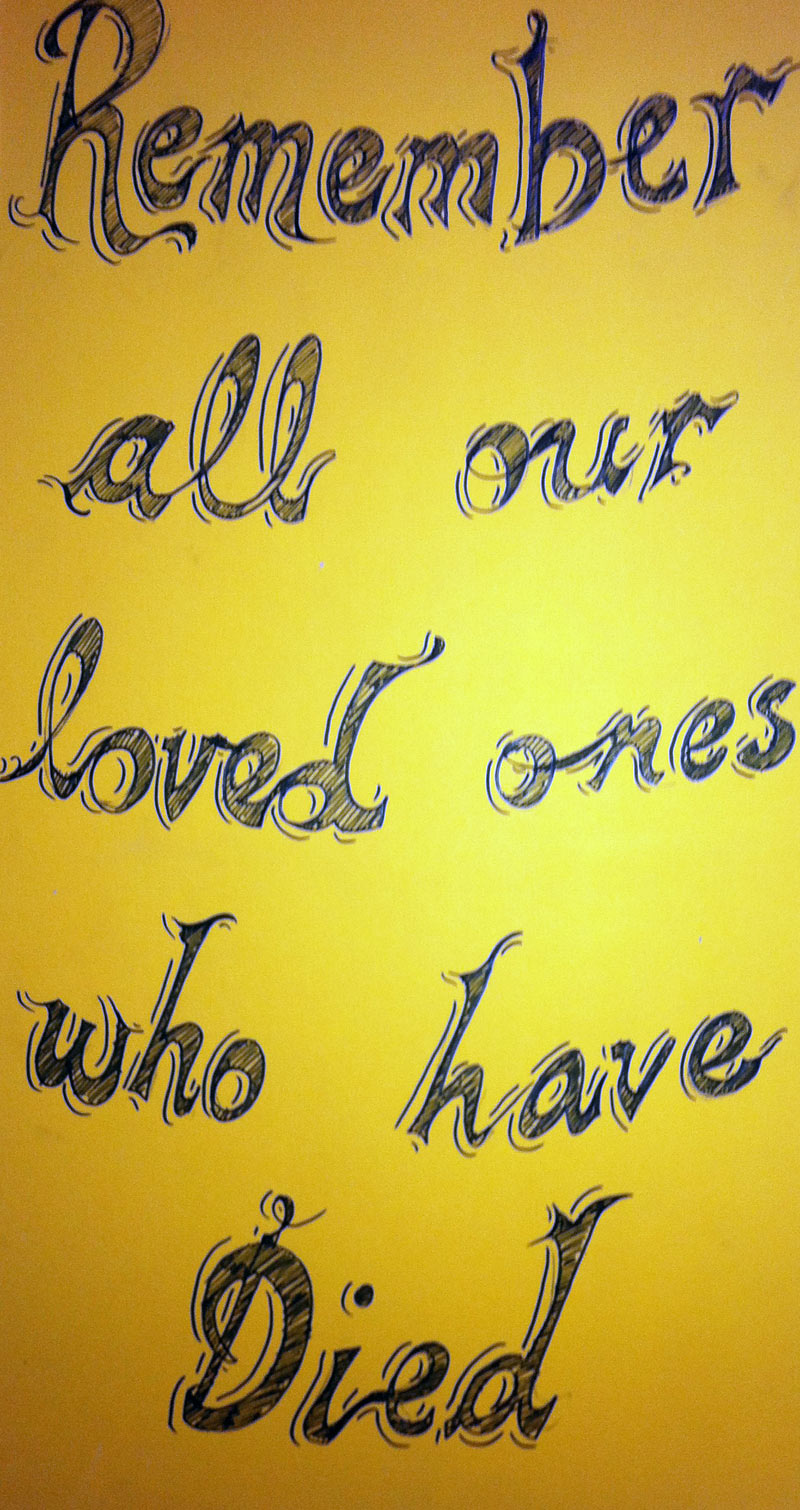 Remember
all our
loved ones
who have
Died